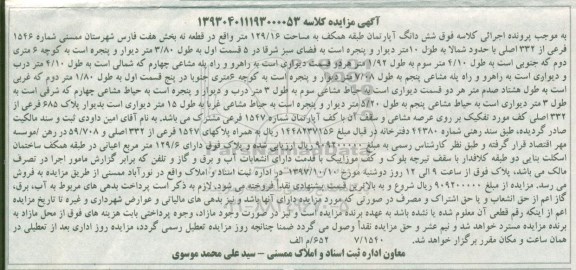 آگهی مزایده کلاسه ۱۳۹۳۰۴۰۱۱۱۹۳۰۰۰۰۵۳
به موجب پرونده اجرائی کلاسه فوق شش دانگ آپارتمان طبقه همکف به مساحت ۱۲۹/۱۶ متر واقع در قطعه نه بخش هفت فارس شهرستان ممسنی شماره ۱۵۴۶
فرعی از ۳۳۲ اصلی با حدود شمالا به طول ۱۰متر دیوار و پنجره است به فضای سبز شرقا در ۵ قسمت اول به طول ۳/۸۰ متر دیوار و پنجره است به کوچه ۶ متری
دوم که جنوبی است به طول ۴/۱۰ متر سوم به طول ۱/۹۲ متر دوم و سوم قسمت دیواری است به راهرو و راه پله مشاعی چهارم که شمالی است به طول ۲/۱۰ متر درب
و دیواری است به راهرو و راه پله مشاعی پنجم به طول ۷/۶۸ متر دیوار و پنجره است به کوچه ۶متری جنوبا در پنج قسمت اول به طول ۱/۸۰ متر دوم که غربی
است به طول هشتاد صدم متر هر دو قسمت دیواری است به حیاط مشاعی سوم به طول ۳ متر درب و دیوار و پنجره است به حیاط مشاعی چهارم که شرقی است به
طول ۳ متر دیواری است به حیاط مشاعی پنجم به طول ۵/۲۰ متر دیوار و پنجره است به حیاط مشاعی غربا به طول ۱۵ متر دیواری است بدیوار پلاک ۶۸۵ فرعی از
۳۳۲ اصلی کف مورد تفکیک بر روی عرصه مشاعی و سقف آن با کف آپارتمان شماره ۱۵۴۷ فرعی مشترک می باشد. به نام آقای امین داودی ثبت و سند مالکیت
صادر گردیده، طبق سند رهنی شماره ۴۴۳۸۰ دفترخانه در قبال مبلغ ۱۴۴۸۲۳۷۲۵۶ ریال به همراه پلاکهای ۱۵۴۷ فرعی از ۳۳۲ اصلی و ۵۹/۷۰۸ در رهن /موسسه
مهر اقتصاد قرار گرفته و طبق نظر کارشناس رسمی به مبلغ ریال ارزیابی شده پلاک فوق دارای ۱۲۹/۶ متر مربع اعیانی در طبقه همکف ساختمان
اسکلت بنایی دو طبقه کلافدار با سقف تیرچه بلوک و کف موزائیک با قدمت دارای انشعابات آب و برق و گاز و تلفن که برابر گزارش مامور اجرا در تصرف
مالک می باشد، پلاک فوق از ساعت ۹ الی ۱۲ روز دوشنبه مورخ ۱۳۹۷/۱۰/۱۰ در اداره ثبت اسناد و املاک واقع در نورآباد ممسنی از طریق مزایده به فروش
می رسد. مزایده از مبلغ ۹۰۹۲۰۰۰۰۰ ریال شروع و به بالاترین قیمت پیشنهادی نقداً فروخته می شود. لازم به ذکر است پرداخت بدهی های مربوط به آب، برق،
گاز اعم از حق انشعاب و یا حق اشتراک و مصرف در صورتی که مورد مزایده دارای آنها باشد و نیز بدهی های مالیاتی و عوارض شهرداری و غیره تا تاریخ مزایده
اعم از اینکه رقم قطعی آن معلوم شده یا نشده باشد به عهده برنده مزایده است ونیز در صورت وجود مازاد، وجوه پرداختی بابت هزینه های فوق از محل مازاد به
برنده مزایده مسترد خواهد شد و نیم عشر و حق مزایده نقداً وصول می گردد ضمنا چنانچه روز مزایده تعطیل رسمی گردد، مزایده روز اداری بعد از تعطیلی در
همان ساعت و مکان مقرر برگزار خواهد شد. ۷/۱۵۴۰ /۶۵۲م الف
معاون اداره ثبت اسناد و املاک ممسنی - سید علی محمد موسوی